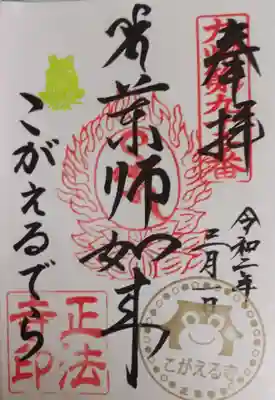 奉拝
令和二年
三月一日
薬師如来
こがえるでら
正法
寺印
こがえる寺